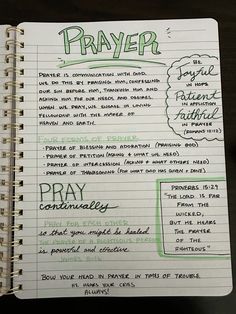 PRAYER
PRAYER IS COMMUNICATION WITH GOD.
WE DO THIS BY PRAISING HIM, CONFESSING
OUR SIN BEFORE HIM, THANKING HIM AND
ASKING HIM FOR OUR NEEDS AND DESIRES.
WHEN WE PRAY, WE ENGAGE IN LOVING
FELLOWSHIP WITH THE MAKER OF
HEAVEN AND EARTH.
BE
Joyful
IN HOPE
Patient
IN AFFLICTION
Faithful
IN PRAYER
(ROMANS 12:12)
FOUR FORMS OF PRAYER
- PRAYER OF BLESSING AND ADORATION (PRAISING GOD)
- PRAYER OF PETITION (ASKING 4 WHAT WE NEED)
- PRAYER OF INTERCESSION (ASKING 4 WHAT OTHERS NEED)
- PRAYER OF THANKSGIVING (FOR WHAT GOD HAS GIVEN & DONE)
PRAY
continually
PRAY FOR EACH OTHER
so that you might be healed
THE PRAYER OF A RIGHTEOUS PERSON
is powerful and effective
JAMES 5:16
PROVERBS 15:29
"THE LORD IS FAR
FROM THE
WICKED,
BUT HE HEARS
THE PRAYER
OF THE
RIGHTEOUS"
BOW YOUR HEAD IN PRAYER IN TIMES OF TROUBLE.
HE HEARS YOUR CRIES
ALWAYS!